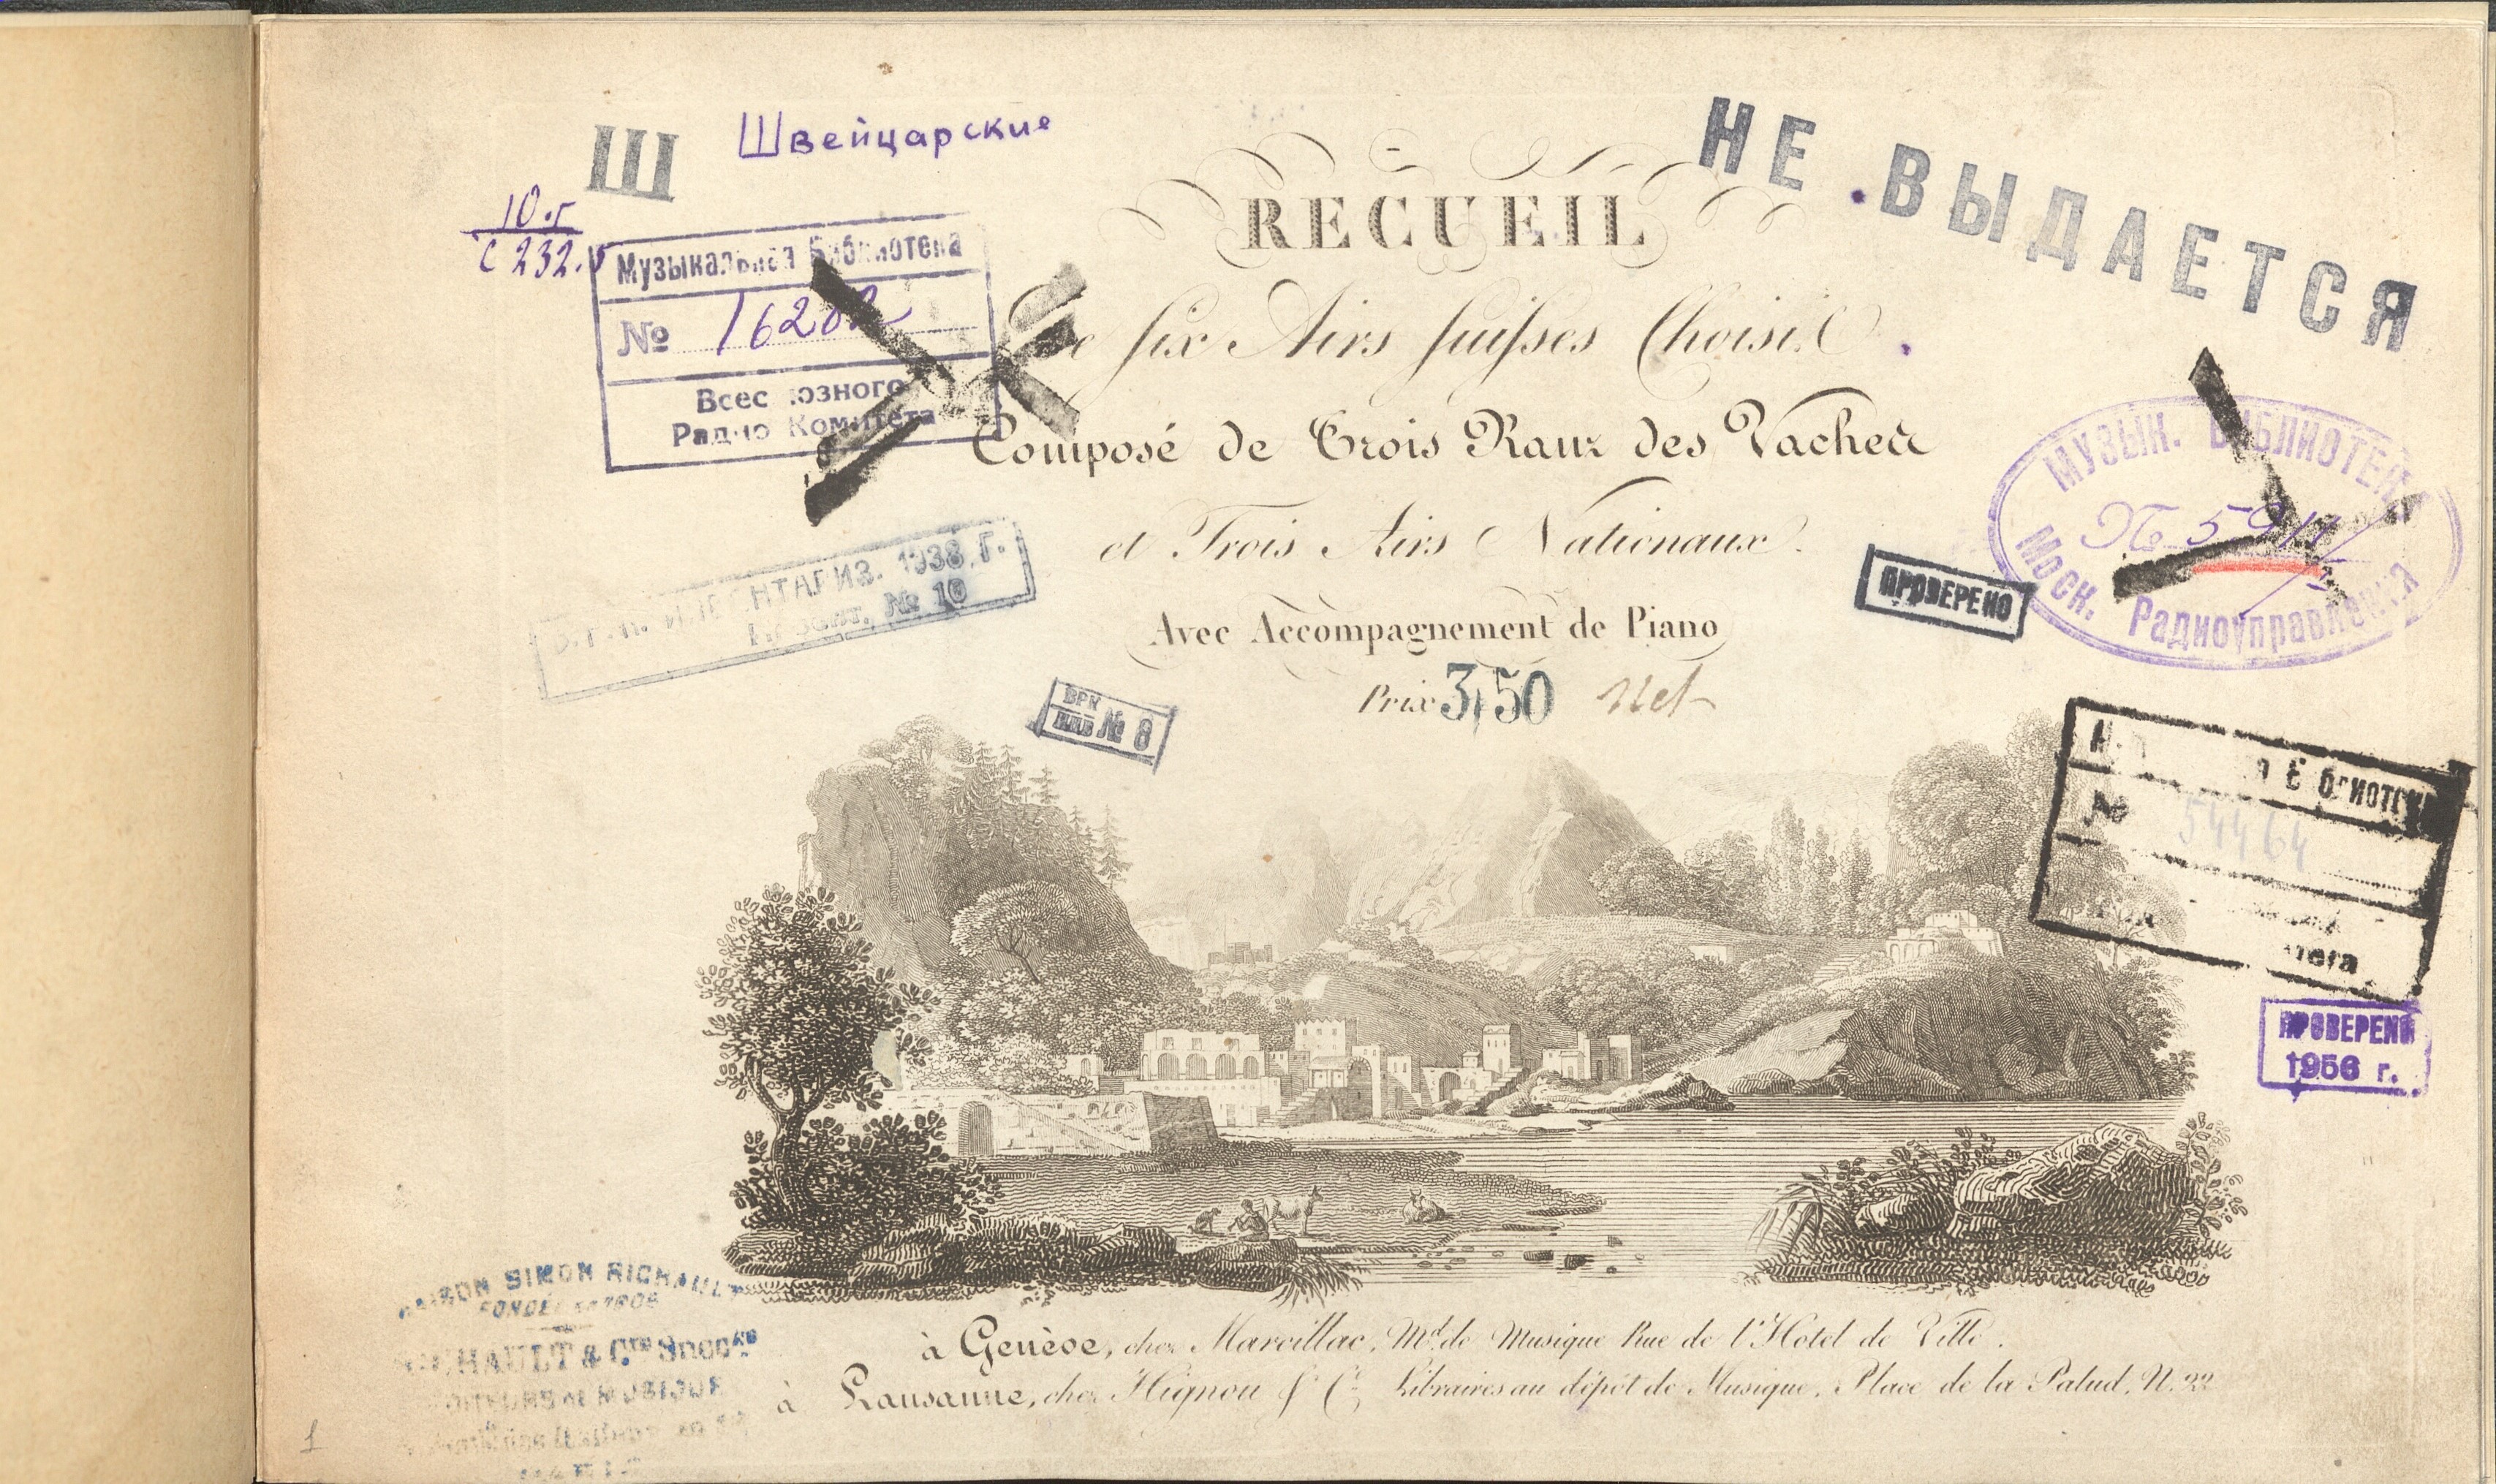 Ш
Швейцарские
НЕ ВЫДАЕТСЯ
10.г
с 232.
Музыкальная Библиотека
№ 16282
Всесоюзного
Радио Комитета
RECUEIL
De six Airs suisses Choisis
Composé de Trois Ranz des Vaches
et Trois Airs Nationaux.
Avec Accompagnement de Piano
Prix 3,50 Net
МУЗЫК. БИБЛИОТЕКА
№ 5911
Моск. Радиоуправления
ПРОВЕРЕНО
ИНВЕНТАРИЗ. 1938 г.
№ 10
ВРК
ИНВ № 8
Библиотека
№ 54464
ПРОВЕРЕНО
1956 г.
MAISON SIMON RICHAULT
FONDÉE EN
RICHAULT & Cie Succrs
EDITEURS DE MUSIQUE
à Genève, chez Marcillac, Md. de Musique Rue de l'Hotel de Ville.
à Lausanne, chez Hignou & Ce. Libraires au dépôt de Musique, Place de la Palud, N. 22
1